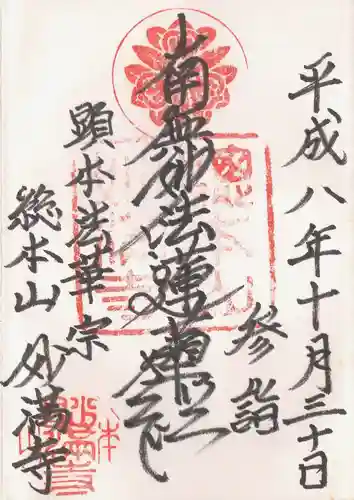 平成八年十月三十日
参詣
南無妙法蓮華経
顕本法華宗
総本山 妙満寺